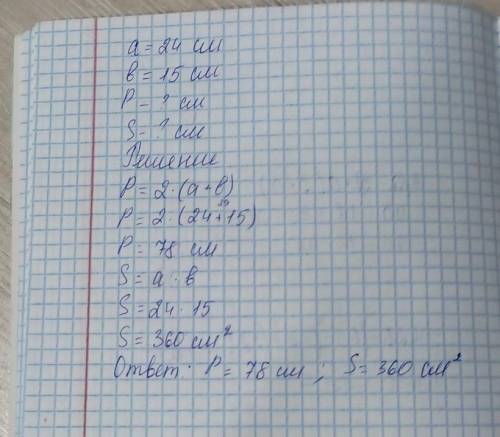 a = 24 см
в = 15 см
P - ? см
S - ? см
Решение
P = 2 · (a + в)
39
P = 2 · (24 + 15)
P = 78 см
S = a · в
S = 24 · 15
S = 360 см²
Ответ: P = 78 см ; S = 360 см²